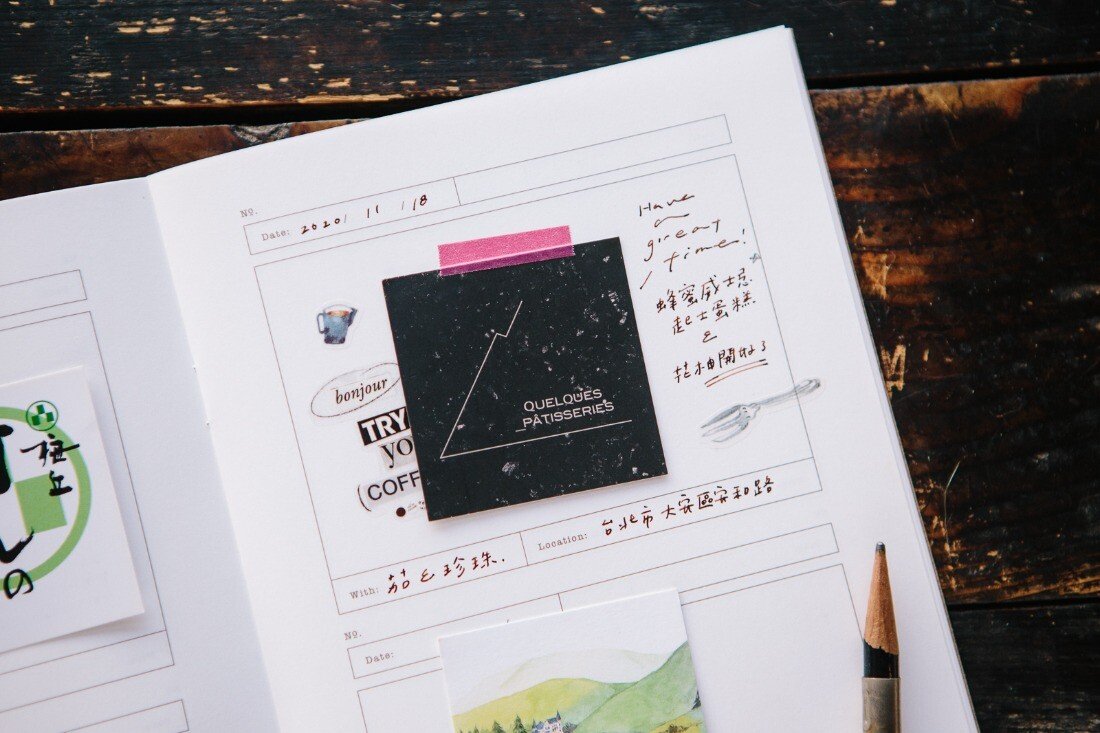 Nº.
Date: 2020/ 11 /18
Have
a
great
time!
蜂蜜威士忌
起士蛋糕
&
花神開好了
bonjour
TRY
yo
(COFF
QUELQUES
PÂTISSERIES
With: 茹 & 珍珠.
Location: 台北市大安區安和路
Nº.
Date:
の